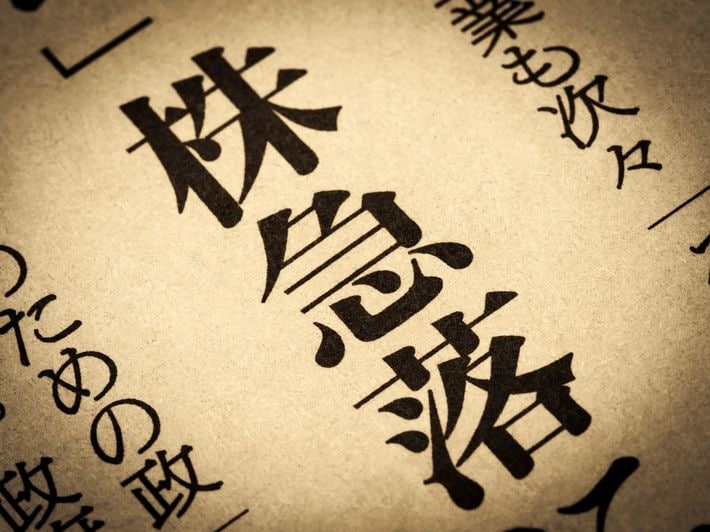 業も次々
株急落
のための政
政